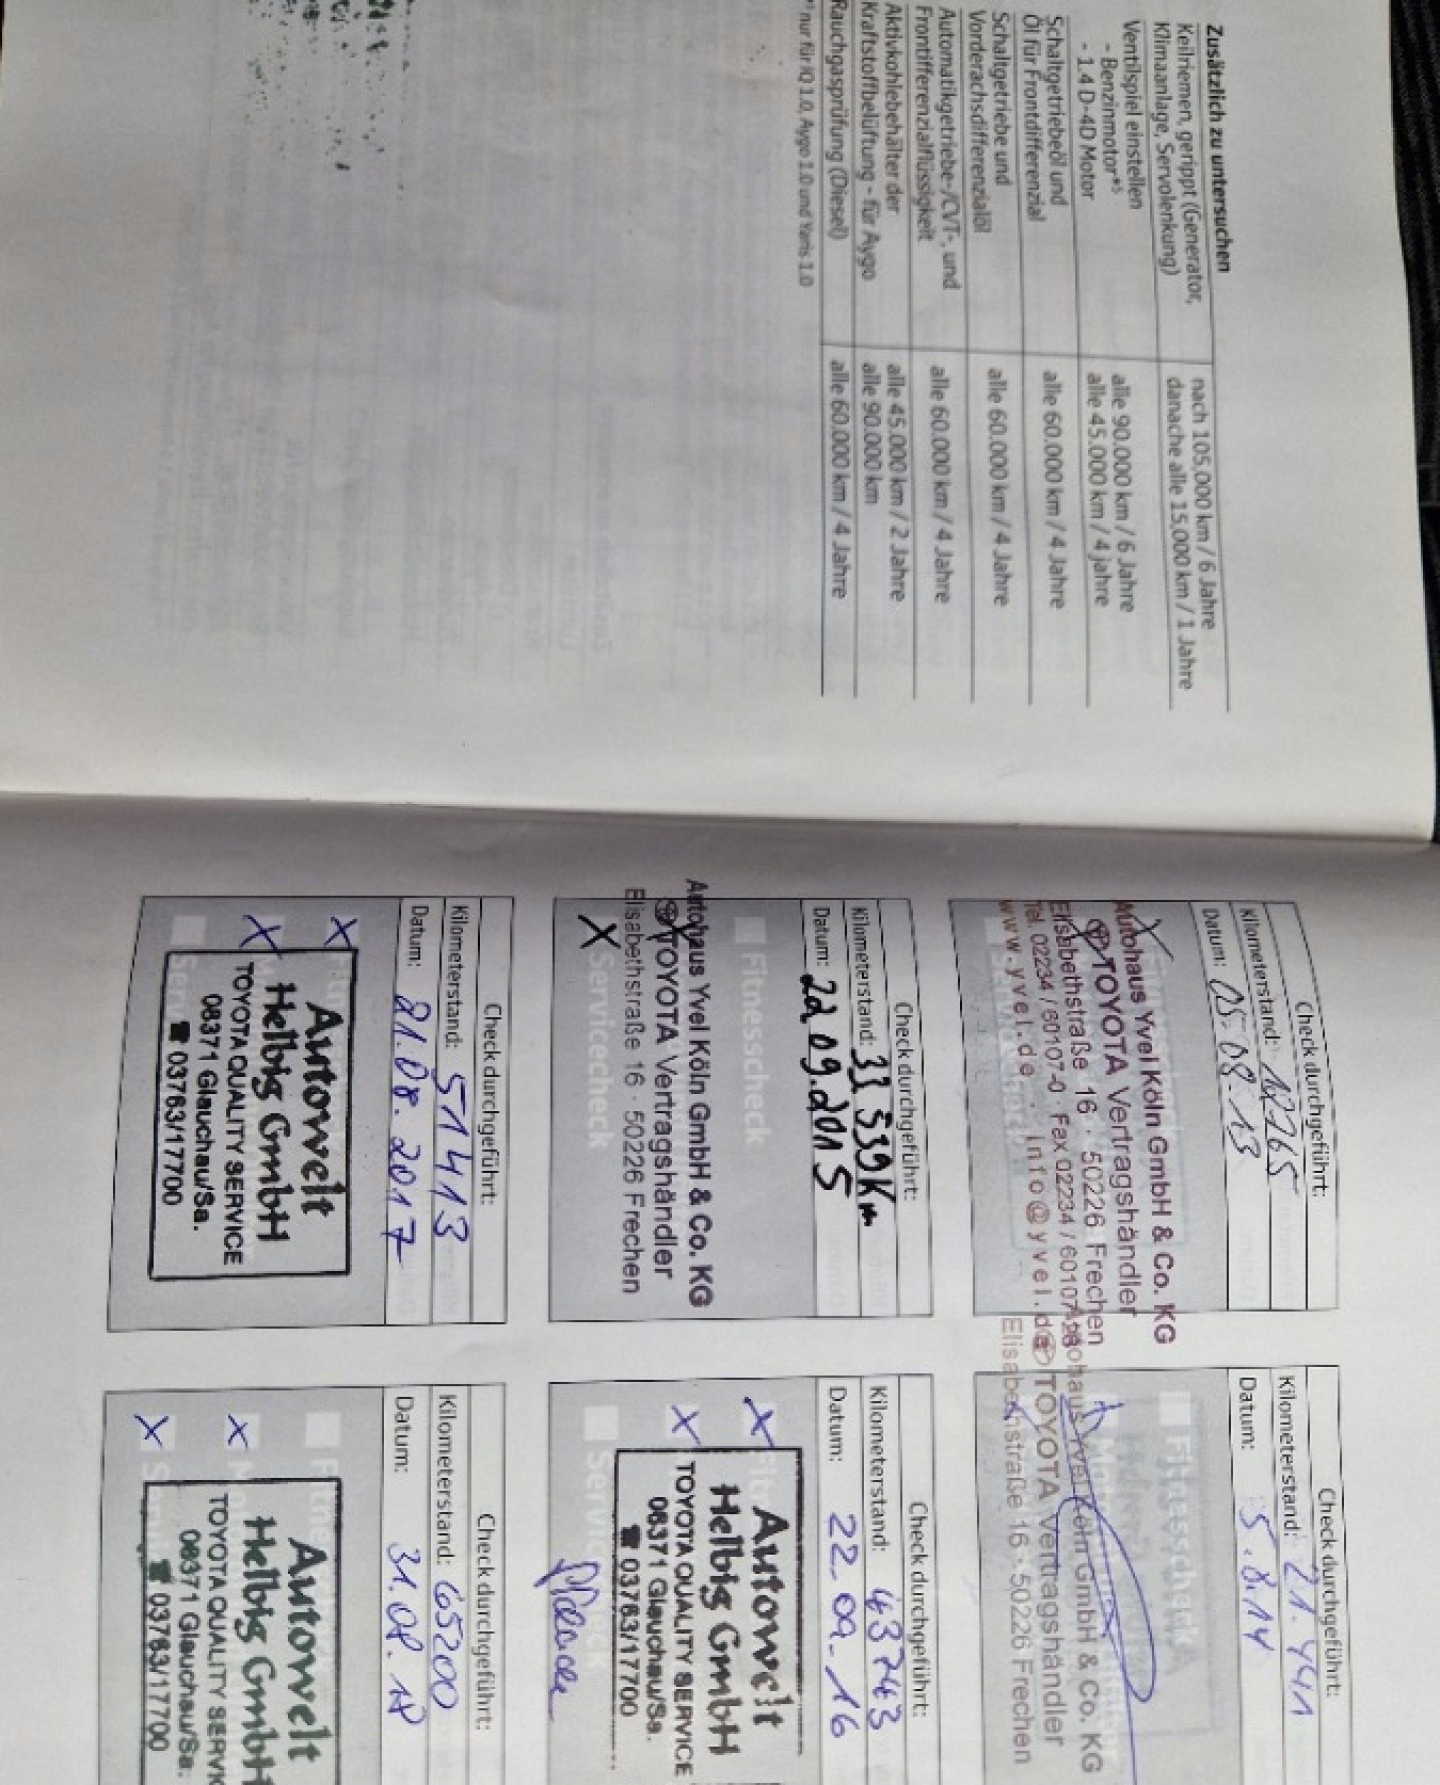 Zusätzlich zu untersuchen
Keilriemen, gerippt (Generator, nach 105,000 km / 6 Jahre
Klimaanlage, Servolenkung) danache alle 15,000 km / 1 Jahre
Ventilspiel einstellen
- Benzinmotor*⁵ alle 90.000 km / 6 Jahre
- 1.4 D-4D Motor alle 45.000 km / 4 jahre
Schaltgetriebeöl und alle 60.000 km / 4 Jahre
Öl für Frontdifferenzial
Schaltgetriebe und alle 60.000 km / 4 Jahre
Vorderachsdifferenzialöl
Automatikgetriebe-/CVT-, und alle 60.000 km / 4 Jahre
Frontifferenzialflüssigkeit
Aktivkohlebehälter der alle 45.000 km / 2 Jahre
Kraftstoffbelüftung - für Aygo alle 90.000 km
Rauchgasprüfung (Diesel) alle 60.000 km / 4 Jahre
nur für IQ 1.0, Aygo 1.0 und Yaris 1.0
Check durchgeführt:
Kilometerstand:
Datum: 05.08.13
Autohaus Yvel Köln GmbH & Co. KG
TOYOTA Vertragshändler
Elisabethstraße 16 · 50226 Frechen
Tel. 02234 / 60107-0 · Fax 02234 / 60107-26
www.yvel.de · info@yvel.de
Check durchgeführt:
Kilometerstand: 21.441
Datum: 5.8.14
Fitnesscheck
Autohaus Yvel Köln GmbH & Co. KG
TOYOTA Vertragshändler
Elisabethstraße 16 · 50226 Frechen
Check durchgeführt:
Kilometerstand: 33 539 Km
Datum: 22.09.2015
Fitnesscheck
Autohaus Yvel Köln GmbH & Co. KG
TOYOTA Vertragshändler
Elisabethstraße 16 · 50226 Frechen
X Servicecheck
Check durchgeführt:
Kilometerstand: 43743
Datum: 22-09-16
X
X
Autowelt
Helbig GmbH
TOYOTA QUALITY SERVICE
08371 Glauchau/Sa.
☎ 03763/17700
Check durchgeführt:
Kilometerstand: 51413
Datum: 21.08.2017
X
X
Autowelt
Helbig GmbH
TOYOTA QUALITY SERVICE
08371 Glauchau/Sa.
☎ 03763/17700
Check durchgeführt:
Kilometerstand: 65200
Datum: 31.08.18
X
X
Autowelt
Helbig GmbH
TOYOTA QUALITY SERVIC
08371 Glauchau/Sa.
☎ 03763/17700